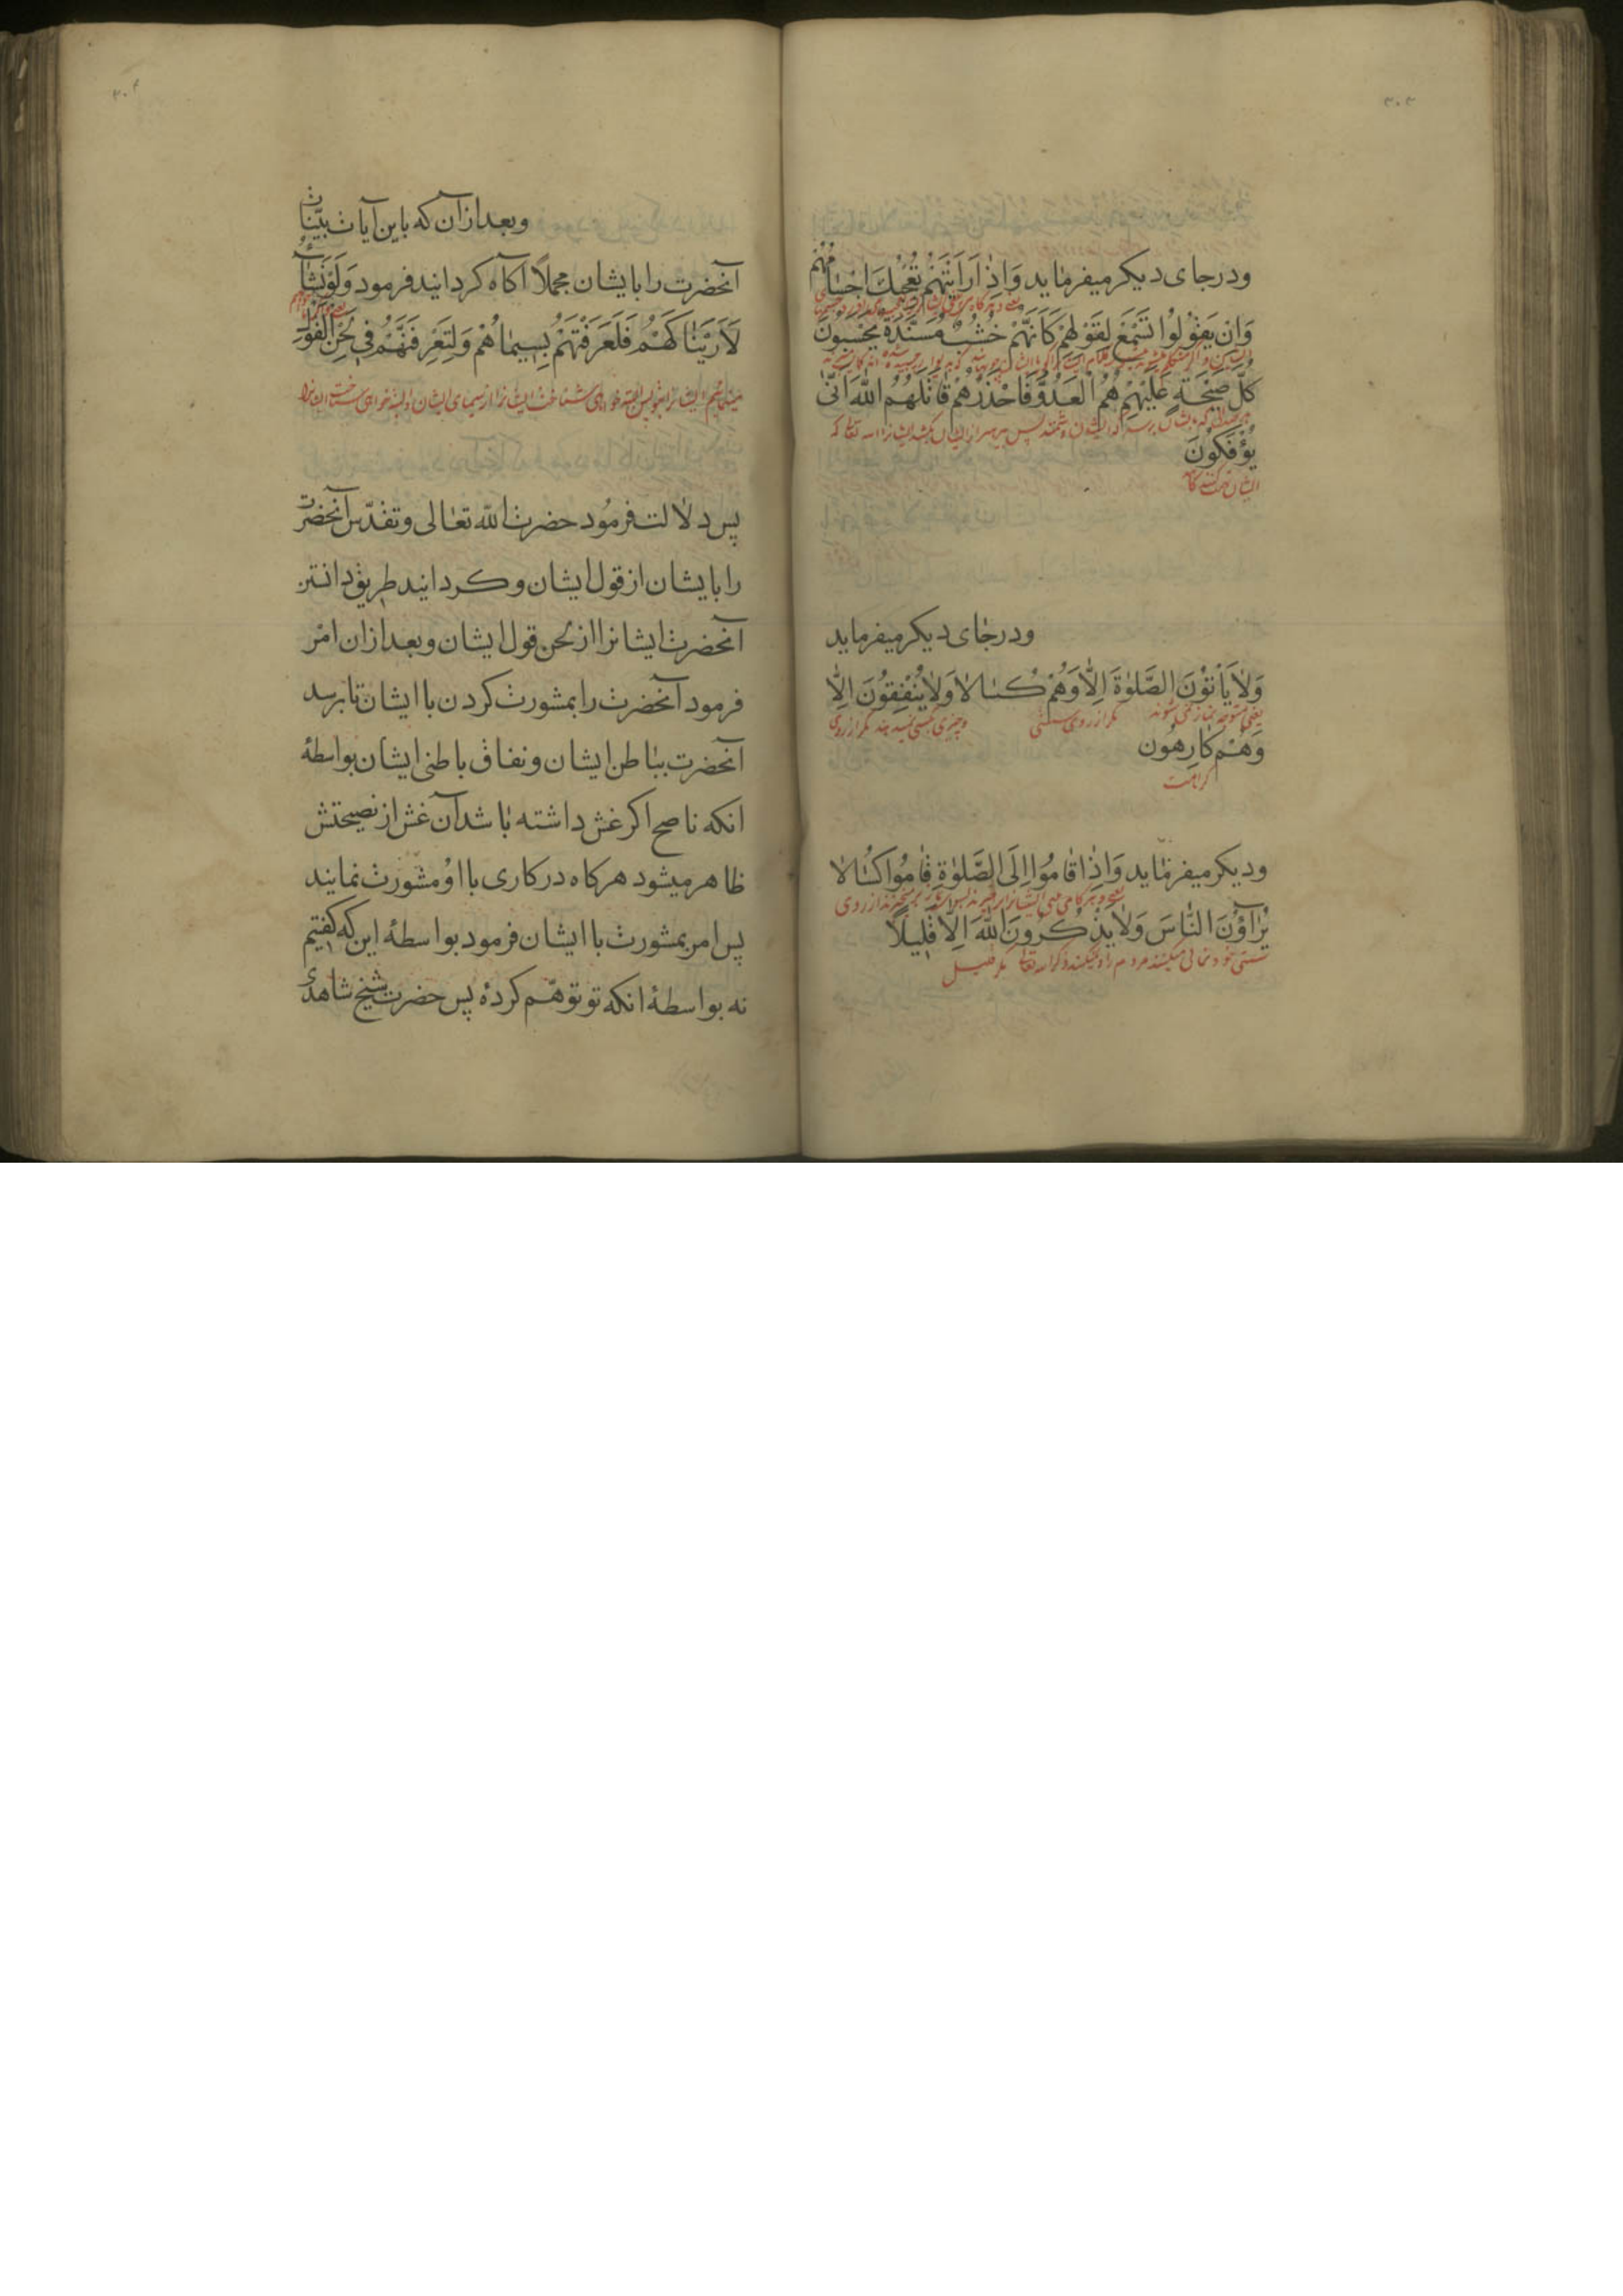 ۳۰۳
ودرجای دیکر میفرماید وَاِذٰا رَاَیْتَهُمْ تُعْجِبُكَ اَجْسٰامُهُمْ
وَاِنْ یَقُوْلُوْا تَسْمَعْ لِقَوْلِهِمْ کَاَنَّهُمْ خُشُبٌ مُسَنَّدَةٌ یَحْسَبُونَ
کُلَّ صَیْحَةٍ عَلَیْهِمْ هُمُ الْعَدُوُّ فَاحْذَرْهُمْ قٰاتَلَهُمُ اللّٰهُ اَنّٰی
یُؤْفَکُوْنَ
ودرجٰای دیکر میفرماید
وَلاٰ یَأْتُوْنَ الصَّلوٰةَ اِلّاٰ وَهُمْ کُسٰالاٰ وَلاٰ یُنْفِقُوْنَ اِلّاٰ
یعنی متوجه نماز نمی شوند مکر از روی سستی وچیزی بکسی نمیدهند مکر از روی
وَهُمْ کٰارِهُون
کراهت
ودیکر میفرمٰاید وَاِذٰا قٰامُوا اِلَی الصَّلوٰةِ قٰامُوا کُسٰالاٰ
یُرٰآؤُنَ النّٰاسَ وَلاٰ یَذْکُرُونَ اللّٰهَ اِلّاٰ قَلیٖلًا
سستی خود نمائی میکنند مردم را و نمیکنند ذکر الله تعالی مکر قلیل
۳۰۴
وبعد از آن که باین آیات بیّنات
آنحضرت را بایشان مجملًا آکاه کردانید فرمود وَلَوْ نَشٰآءُ
لَاَرَیْنٰاکَهُمْ فَلَعَرَفْتَهُمْ بِسِیمٰاهُمْ وَلَتَعْرِفَنَّهُمْ فِی لَحْنِ الْقَوْلِ
پس دلالت فرمُود حضرت اللّه تعٰالی وتقدّس آنحضرت
را بایشان از قول ایشان وکردانید طریق دانستن
آنحضرت ایشانرا از لحن قول ایشان وبعد ازان امْر
فرمود آنحضرت را بمشورت کردن با ایشان تا برسد
آنحضرت ببٰاطن ایشان ونفاق باطنی ایشان بواسطهٔ
انکه ناصح اکر غش داشته بٰاشد آن غش از نصیحتش
ظاهر میشود هرکاه در کاری با اوُ مشورت نمایند
پس امر بمشورت با ایشان فرمود بواسطهٔ این که کفتیم
نه بواسطهٔ انکه تو توهّم کردهٔ پس حضرت شیخ شاهدی